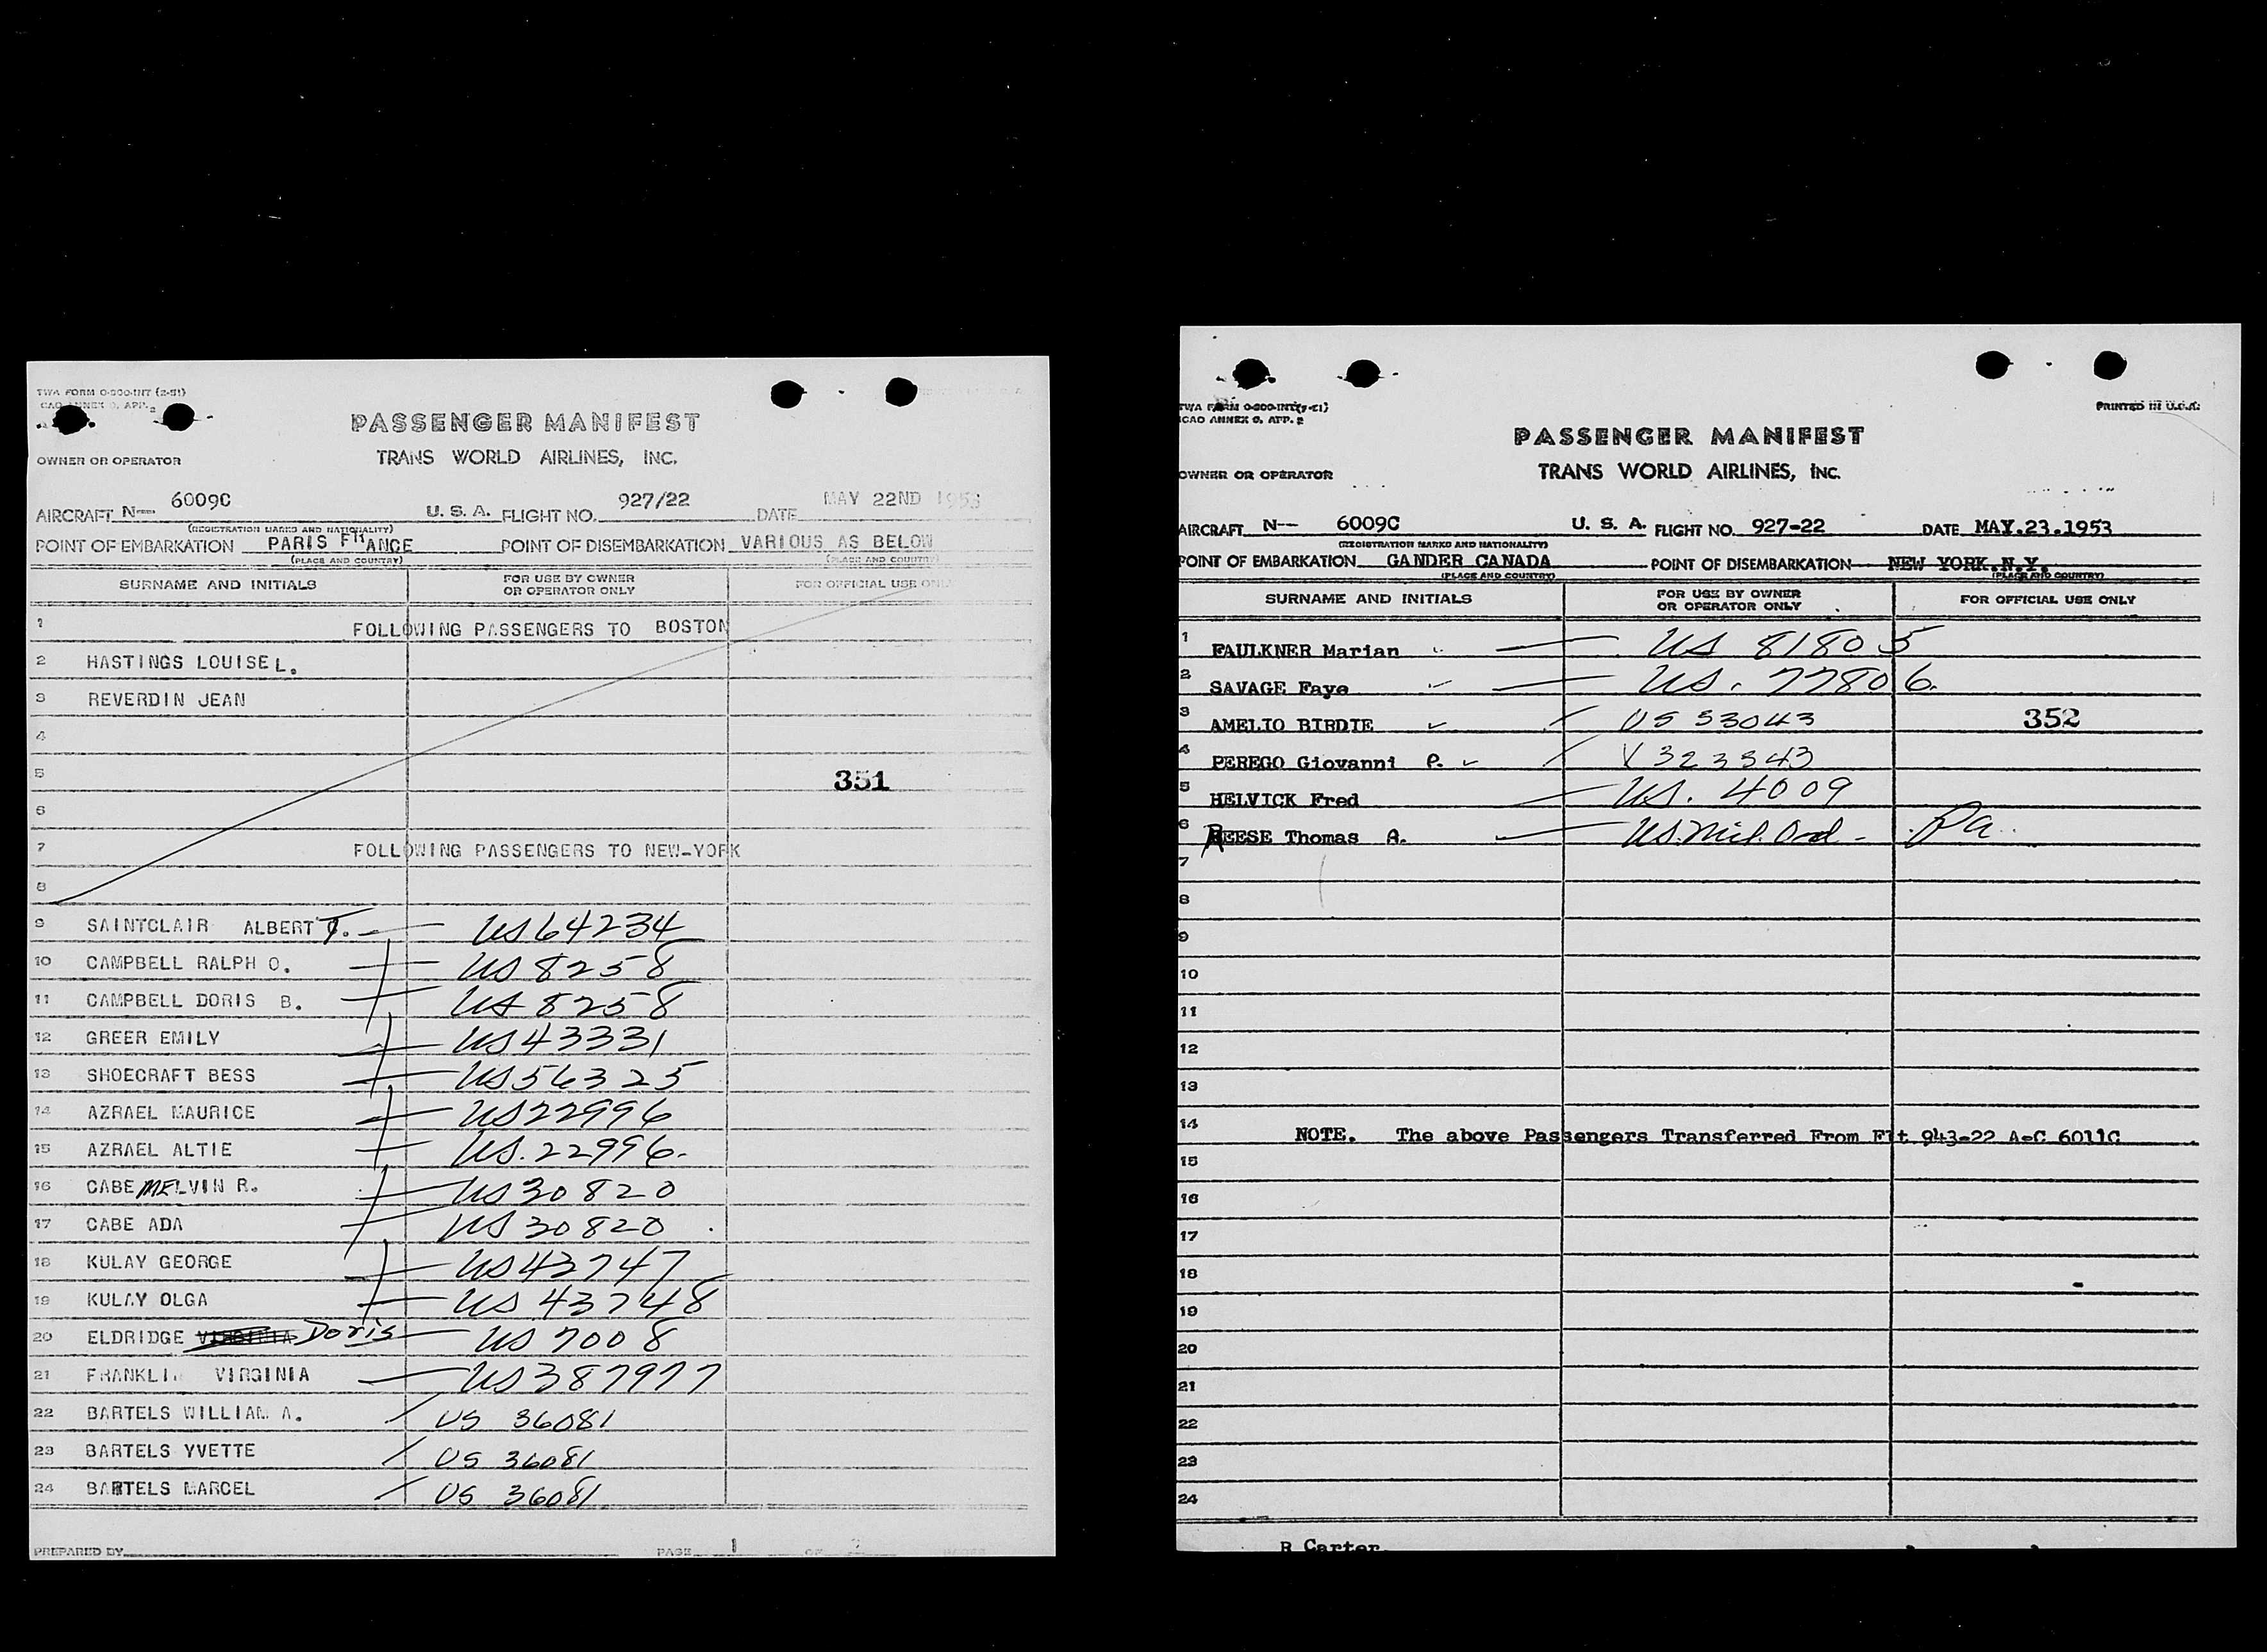 TWA FORM O-200-INT (2-51)
PASSENGER MANIFEST
OWNER OR OPERATOR TRANS WORLD AIRLINES, INC.
AIRCRAFT N— 6009C U. S. A. FLIGHT NO. 927/22 DATE MAY 22ND 1953
(REGISTRATION MARKS AND NATIONALITY)
POINT OF EMBARKATION PARIS FRANCE POINT OF DISEMBARKATION VARIOUS AS BELOW
(PLACE AND COUNTRY) (PLACE AND COUNTRY)
SURNAME AND INITIALS FOR USE BY OWNER OR OPERATOR ONLY FOR OFFICIAL USE ONLY
1 FOLLOWING PASSENGERS TO BOSTON
2 HASTINGS LOUISE L.
3 REVERDIN JEAN
4
5 351
6
7 FOLLOWING PASSENGERS TO NEW-YORK
8
9 SAINTCLAIR ALBERT T. US 64234
10 CAMPBELL RALPH O. US 8258
11 CAMPBELL DORIS B. US 8258
12 GREER EMILY US 43331
13 SHOECRAFT BESS US 56325
14 AZRAEL MAURICE US 22996
15 AZRAEL ALTIE US. 22996.
16 CABE MELVIN R. US 30820
17 CABE ADA US 30820
18 KULAY GEORGE US 43747
19 KULAY OLGA US 43748
20 ELDRIDGE VIRGINIA Doris US 7008
21 FRANKLIN VIRGINIA US 387977
22 BARTELS WILLIAM A. US 36081
23 BARTELS YVETTE US 36081
24 BARTELS MARCEL US 36081
PREPARED BY PAGE 1 OF 2
ICAO ANNEX 9, APP. 2 PRINTED IN U.S.A.
PASSENGER MANIFEST
OWNER OR OPERATOR TRANS WORLD AIRLINES, INC.
AIRCRAFT N-- 6009C U. S. A. FLIGHT NO. 927-22 DATE MAY.23.1953
(REGISTRATION MARKS AND NATIONALITY)
POINT OF EMBARKATION GANDER CANADA POINT OF DISEMBARKATION NEW YORK.N.Y.
(PLACE AND COUNTRY) (PLACE AND COUNTRY)
SURNAME AND INITIALS FOR USE BY OWNER OR OPERATOR ONLY FOR OFFICIAL USE ONLY
1 FAULKNER Marian US 81805
2 SAVAGE Faye US. 77806.
3 AMELIO BIRDIE US 53043 352
4 PEREGO Giovanni P. V 323343
5 HELVICK Fred US. 4009
6 REESE Thomas A. US. Mil. Ord -
7
8
9
10
11
12
13
14 NOTE. The above Passengers Transferred From Flt 943-22 A-C 6011C
15
16
17
18
19
20
21
22
23
24
R Carter